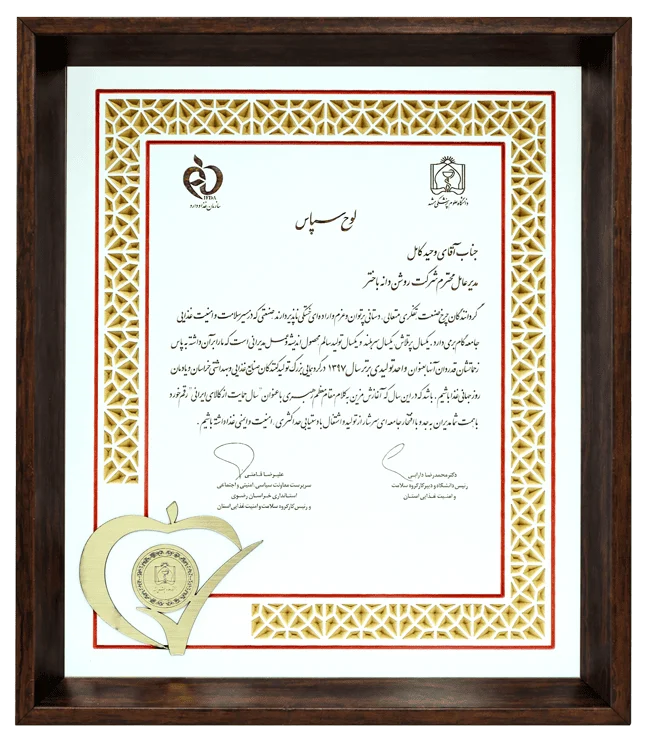 IFDA
سازمان غذا و دارو
دانشگاه علوم پزشکی مشهد
لوح سپاس
جناب آقای وحید کامل
مدیر عامل محترم شرکت روشن دانه باختر
گردانندگان چرخ صنعت تفکری متعالی، دستانی پرتوان و عزم و اراده ای خستگی ناپذیر دارند. صنعتی که در مسیر سلامت و امنیت غذایی
جامعه گام برمی دارد. یکسال پرتلاش، یکسال سربلند و یکسال تولید سالم محصول اندیشه و عمل مدیرانی است که ما را بر آن داشته به پاس
زحماتشان قدردان آنها بعنوان واحد تولیدی برتر سال ۱۳۹۷ در گردهمایی بزرگ تولیدکنندگان صنایع غذایی و بهداشتی خراسان و یادمان
روز جهانی غذا باشیم. باشد که در این سال که آغازش مزین به کلام مقام معظم رهبری با عنوان "سال حمایت از کالای ایرانی" رقم خورد
با همت شما مدیران به جد و با افتخار جامعه ای سرشار از تولید و اشتغال با دستیابی حداکثری، امنیت و ایمنی غذا داشته باشیم.
دکتر محمدرضا دارابی
رئیس دانشگاه و دبیر کارگروه سلامت
و امنیت غذایی استان
علیرضا قامتی
سرپرست معاونت سیاسی، امنیتی و اجتماعی
استانداری خراسان رضوی
و رئیس کارگروه سلامت و امنیت غذایی استان